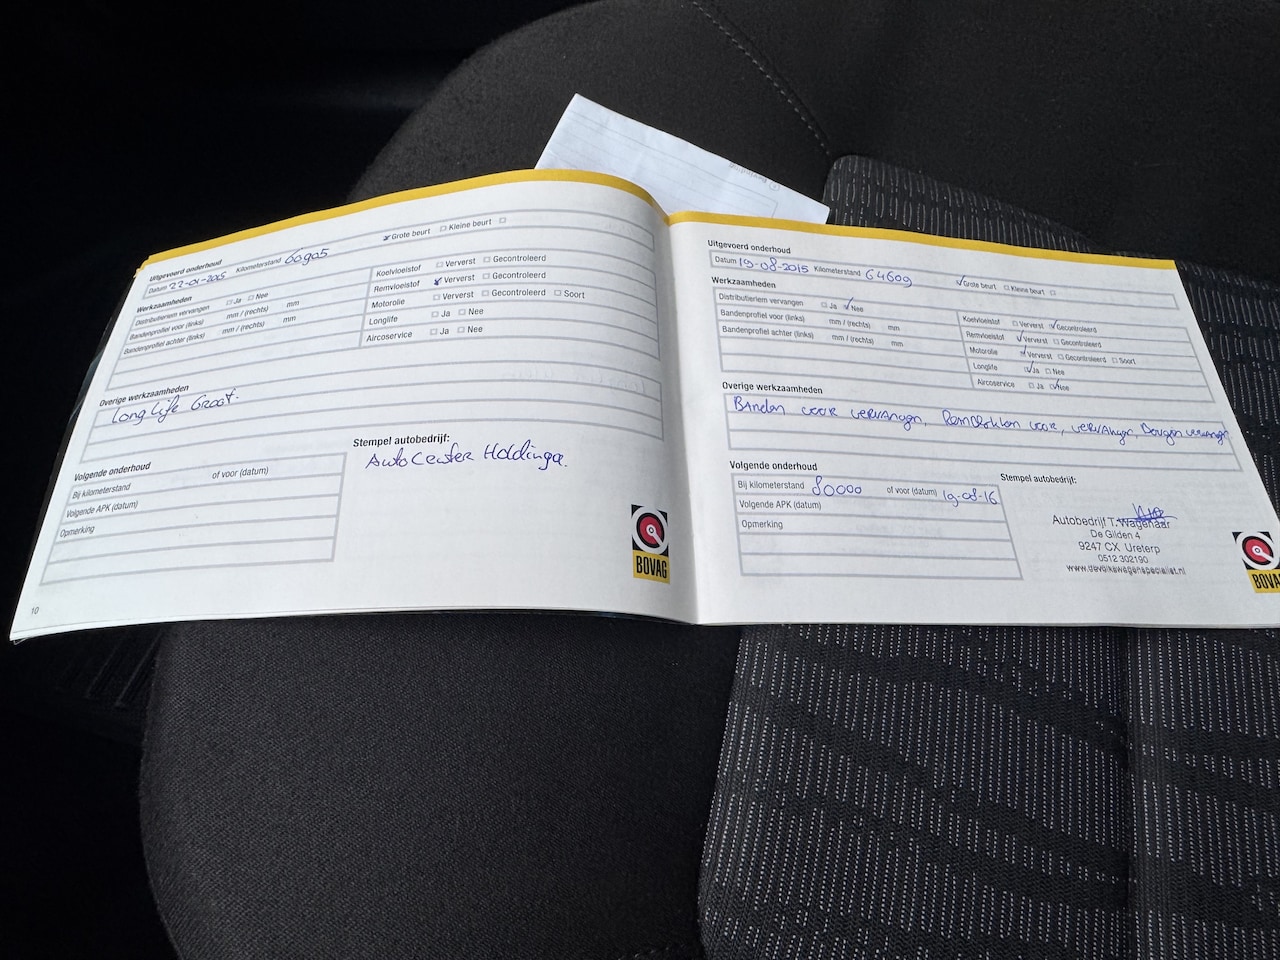 Uitgevoerd onderhoud
Datum 22-01-2015 Kilometerstand 60905 Grote beurt Kleine beurt
Werkzaamheden
Distributieriem vervangen Ja Nee
Bandenprofiel voor (links) mm / (rechts) mm
Bandenprofiel achter (links) mm / (rechts) mm
Koelvloeistof Ververst Gecontroleerd
Remvloeistof Ververst Gecontroleerd
Motorolie Ververst Gecontroleerd Soort
Longlife Ja Nee
Aircoservice Ja Nee
Overige werkzaamheden
Long life Groot.
Volgende onderhoud
Bij kilometerstand of voor (datum)
Volgende APK (datum)
Opmerking
Stempel autobedrijf:
AutoCenter Holdinga.
BOVAG
10
Uitgevoerd onderhoud
Datum 19-08-2015 Kilometerstand 64609 Grote beurt Kleine beurt
Werkzaamheden
Distributieriem vervangen Ja Nee
Bandenprofiel voor (links) mm / (rechts) mm
Bandenprofiel achter (links) mm / (rechts) mm
Koelvloeistof Ververst Gecontroleerd
Remvloeistof Ververst Gecontroleerd
Motorolie Ververst Gecontroleerd Soort
Longlife Ja Nee
Aircoservice Ja Nee
Overige werkzaamheden
Banden voor vervangen, Remblokken voor, vervangen,
Volgende onderhoud
Bij kilometerstand 80000 of voor (datum) 19-08-16
Volgende APK (datum)
Opmerking
Stempel autobedrijf:
Autobedrijf T. Wagenaar
De Gilden 4
9247 CX Ureterp
0512 302190
www.devolkswagenspecialist.nl
BOVA